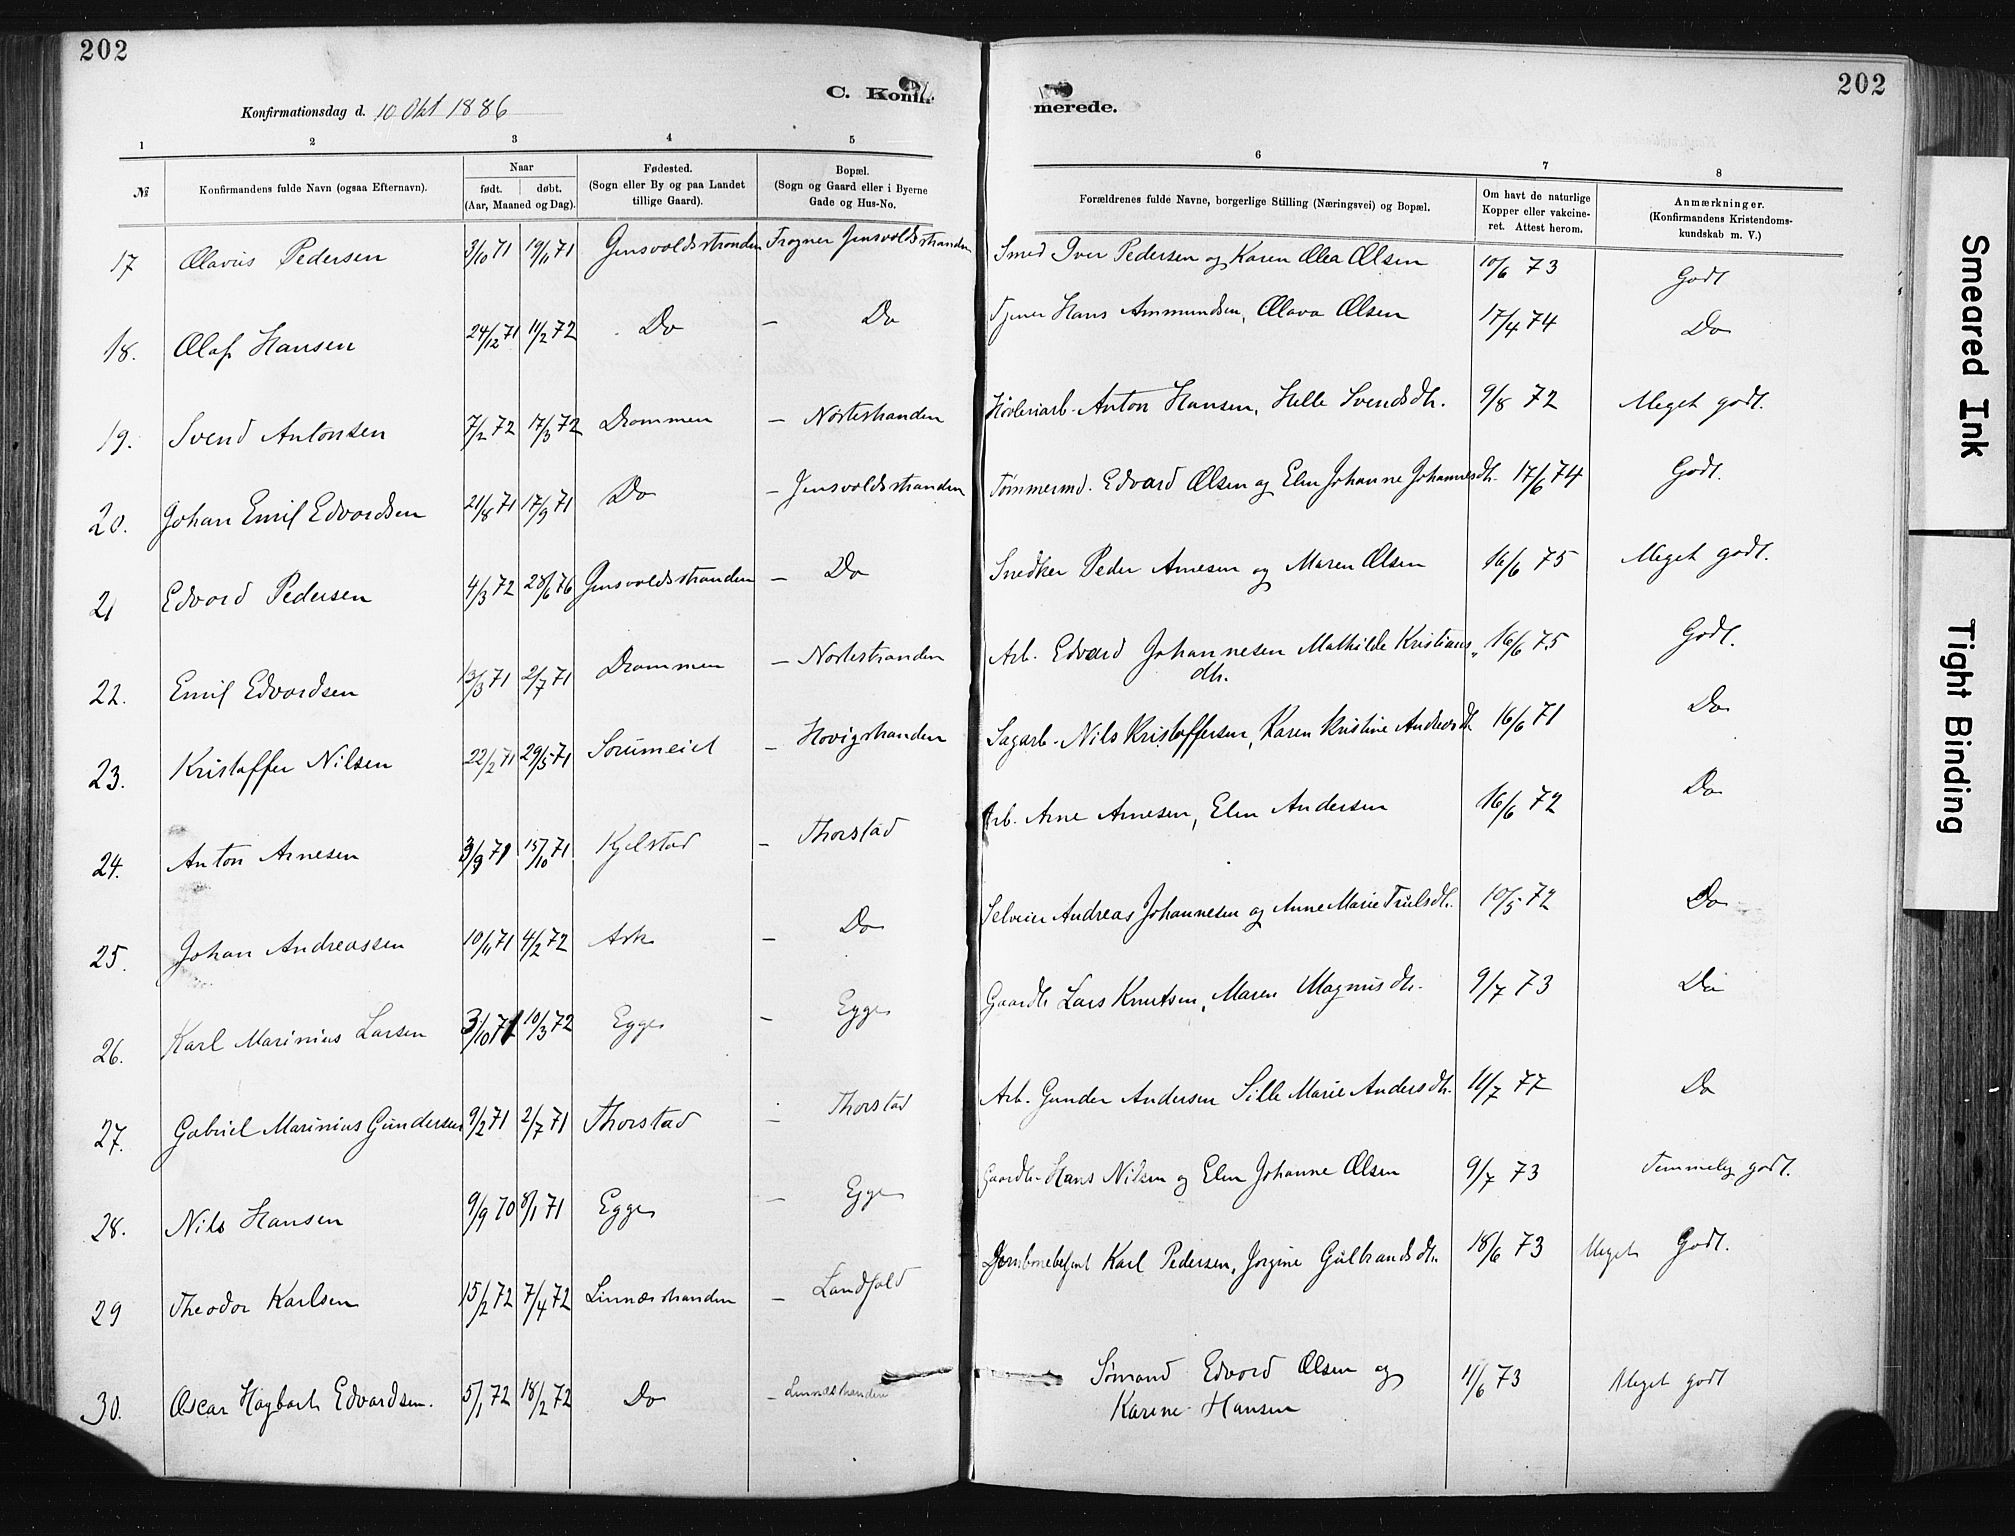 202
202
C. Konfir-
merede.
Konfirmationsdag d. 10 Okt 1886
1 2 3 4 5 6 7 8
№ Konfirmandens fulde Navn (ogsaa Efternavn). Naar født. døbt. (Aar, Maaned og Dag). Fødested. (Sogn eller By og paa Landet tillige Gaard). Bopæl. (Sogn og Gaard eller i Byerne Gade og Hus-No. Forældrenes fulde Navne, borgerlige Stilling (Næringsvei) og Bopæl. Om havt de naturlige Kopper eller vakcineret. Attest herom. Anmærkninger. (Konfirmandens Kristendomskundskab m. V.)
17 Olavus Pedersen 3/10 71 19/11 71 Gjensvoldsstranden Frogner Jensvoldsstranden Smed Iver Pedersen og Karen Olea Olsen 10/6 73 Godt
18. Olaf Hansen 24/12 71 11/2 72 Do – Do Tjener Hans Ammundsen, Olava Olsen 17/4 74 Do
19. Svend Antonsen 7/2 72 17/3 72 Drammen – Nøstestranden Høvleriarb. Anton Hansen, Helle Svendsdtr. 9/8 72 Meget godt.
20. Johan Emil Edvardsen 21/8 71 17/9 71 Do – Jensvoldsstranden Tømmermd. Edvard Olsen og Elen Johanne Johannesdtr. 17/6 74 Godt.
21 Edvard Pedersen 4/3 72 28/6 76 Gjensvoldsstranden – Do Snedker Peder Arnesen og Maren Olsen 16/6 75 Meget godt.
22. Emil Edvardsen 13/3 71 2/7 71 Drammen – Nøstestranden Arb. Edvard Johannesen Mathilde Kristiansdtr. 16/6 75 Godt.
23. Kristoffer Nilsen 22/2 71 29/5 71 Sørumeiet – Hovigstranden Sagarb. Nils Kristoffersen, Karen Kristine Andreasdtr 16/6 71 Do
24. Anton Arnesen 3/9 71 15/10 71 Kjelstad – Thorstad Arb. Arne Arnesen, Elen Andersen 16/6 72 Do
25. Johan Andreassen 10/11 71 4/2 72 Ask – Do Selveier Andreas Johannesen og Anne Marie Trulsdtr. 10/5 72 Do
26. Karl Marinius Larsen 3/10 71 10/3 72 Egge – Egge Gaardbr Lars Knutsen, Maren Magnusdtr. 9/7 73 Do
27. Gabriel Marinius Gundersen 9/2 71 2/7 71 Thorstad – Thorstad Arb. Gunder Andersen Sille Marie Andersdtr. 11/7 77 Do
28. Nils Hansen 9/9 70 8/1 71 Egge – Egge Gaardbr. Hans Nilsen og Elen Johanne Olsen 9/7 73 Temmelig godt.
29 Theodor Karlsen 15/2 72 7/4 72 Linnæsstranden – Landfald Jernbanebetjent Karl Pedersen, Jørgine Gulbrandsdtr. 18/6 73 Meget Godt.
30. Oscar Hagbart Edvardsen. 5/1 72 18/2 72 Do – Linnæsstranden Sømand Edvard Olsen og Karine Hansen 11/6 73 Meget godt
Smeared Ink
Tight Binding